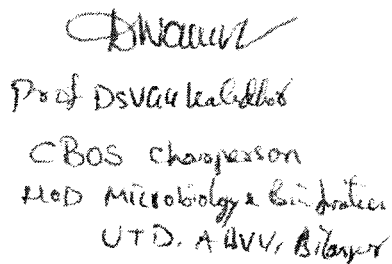 Prof DSVGK Kaladhar
CBOS Chairperson
HOD Microbiology & Bioinformatics
UTD, ABVV, Bilaspur